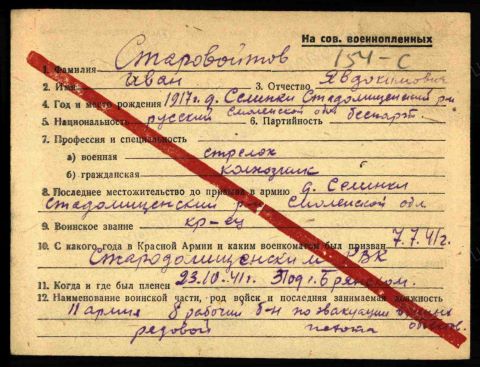 На сов. военнопленных
154-с
1. Фамилия Старовойтов
2. Имя Иван 3. Отчество Явдокимович
4. Год и место рождения 1917г. д. Селинки Стадомищенский р-н
5. Национальность русский Смоленской обл 6. Партийность беспарт.
7. Профессия и специальность
а) военная стрелок
б) гражданская колхозник
8. Последнее местожительство до призыва в армию д. Селинки
Стадомищенский р-н Смоленской обл
9. Воинское звание кр-ец
10. С какого года в Красной Армии и каким военкоматом был призван 7.7.41г.
Стародомищенским РВК
11. Когда и где был пленен 23.10.41г. Под г. Брянском.
12. Наименование воинской части, род войск и последняя занимаемая должность
11 армия 8 рабочий б-н по эвакуации
рядовой пехота